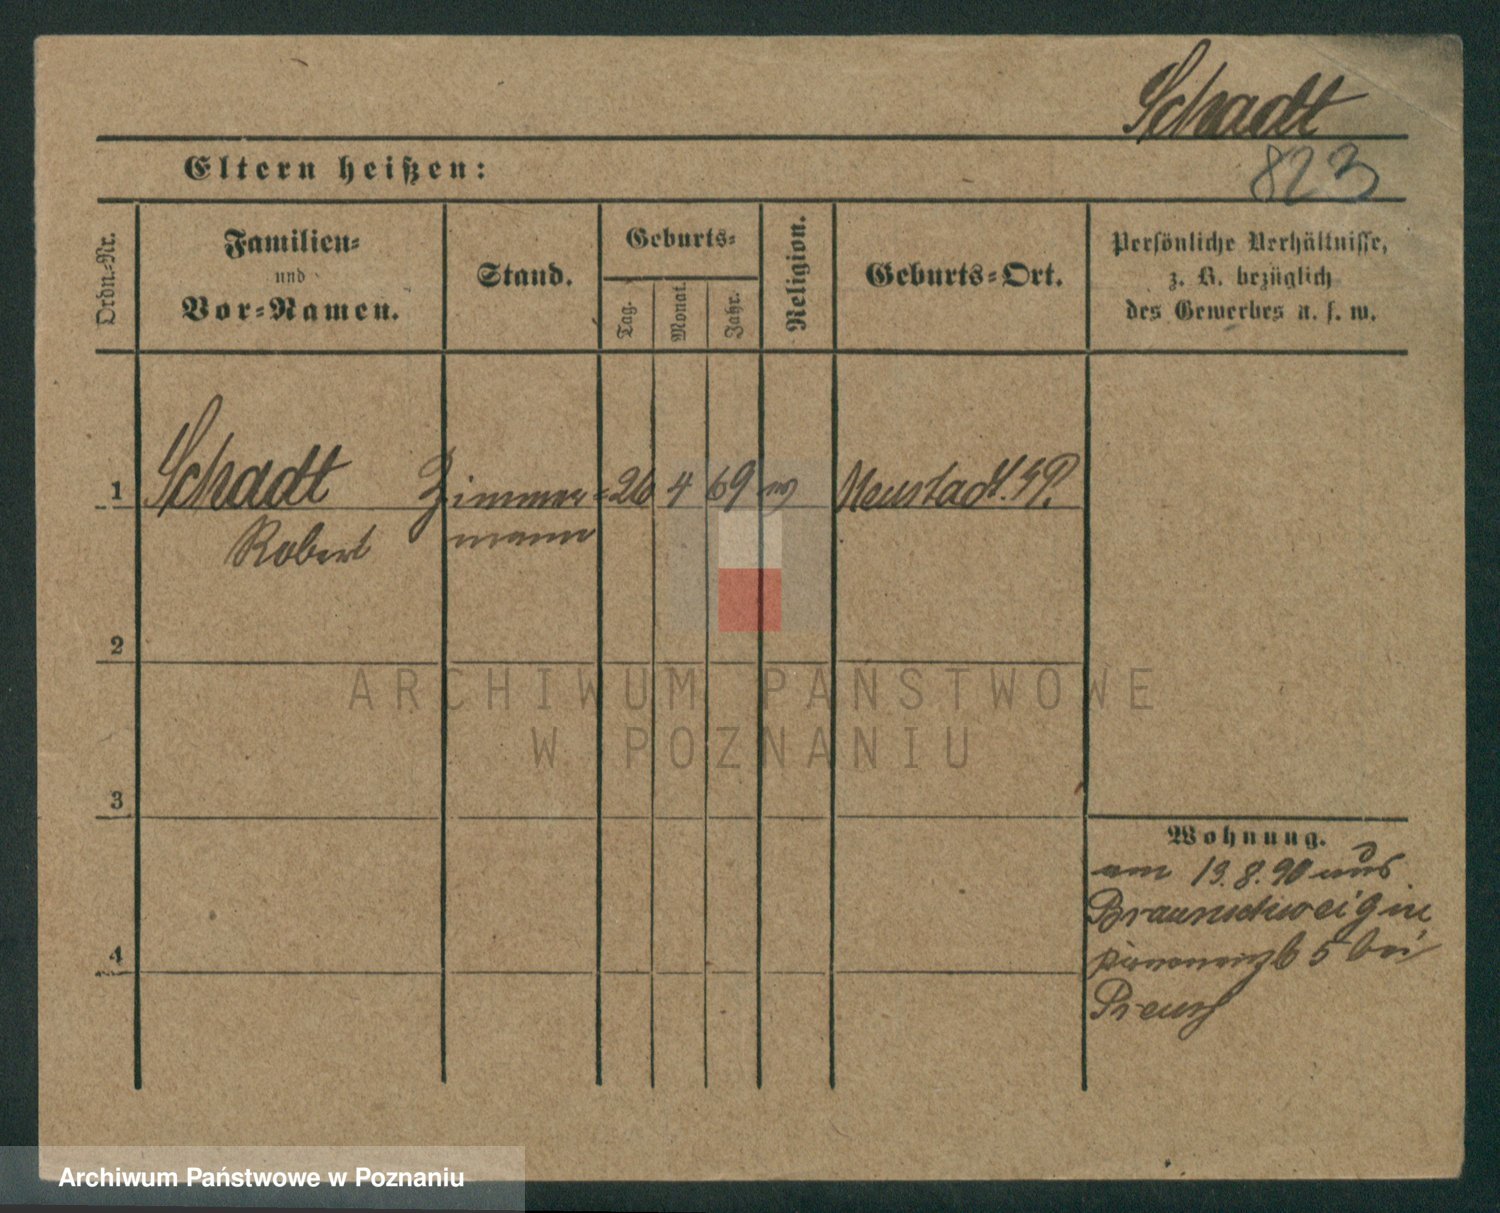 Schadt
823
Eltern heißen:
Ordn.-Nr.
Familien-
und
Vor-Namen.
Stand.
Geburts-
Tag.
Monat.
Jahr.
Religion.
Geburts-Ort.
Persönliche Verhältnisse,
z. B. bezüglich
des Gewerbes u. s. w.
1
Schadt
Robert
Zimmer-
mann
26
4
69
Neustadt
2
3
4
Wohnung.
am 13.8.90 aus
Braunschweig in
5 bei
ARCHIWUM PAŃSTWOWE
W POZNANIU
Archiwum Państwowe w Poznaniu